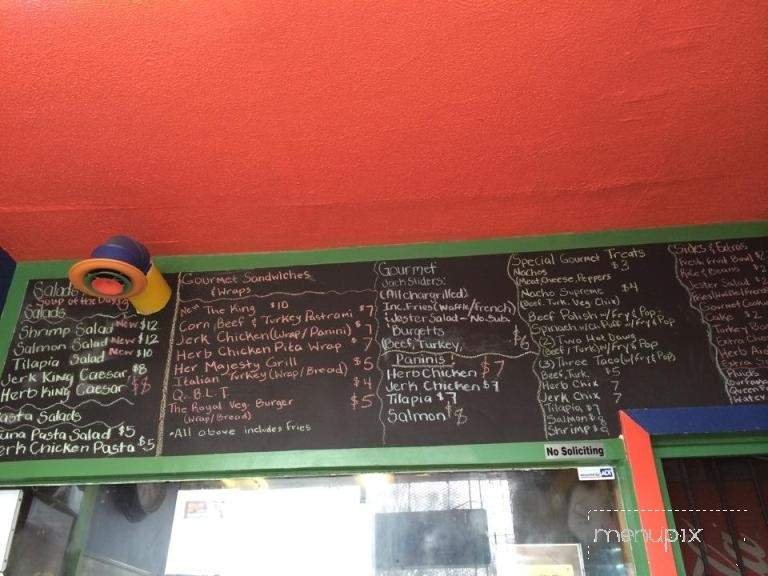 Salads
Soup of the Day
Salads
Shrimp Salad New $12
Salmon Salad New $12
Tilapia Salad New $10
Jerk King Caesar $8
Herb King Caesar $8
Pasta Salads
Tuna Pasta Salad $5
Jerk Chicken Pasta $5
Gourmet Sandwiches
Wraps
New The King $10
Corn Beef & Turkey Pastrami $7
Jerk Chicken (Wrap/Panini) 7
Herb Chicken Pita Wrap 7
Her Majesty Grill $5
Italian Turkey (Wrap/Bread)
Q. B.L.T $4
The Royal Veg. Burger $5
(Wrap/Bread)
*All above includes Fries
Gourmet
Jack Sliders:
(All chargrilled)
Inc. Fries (Waffle/french)
(Jester Salad - No Subs
Burgetts $6
(Beef, Turkey,
Paninis:
Herb Chicken $7
Jerk Chicken $7
Tilapia $7
Salmon $8
Special Gourmet Treats
Nachos $3
Meat, Cheese, Peppers
Nacho Supreme $4
(Beef, Turk, Veg, Chix)
Beef Polish w/fry & Pop
Spinach w/ w/fry & Pop
(2) Two Hot Dawg
(Beef/Turkey) w/fry & Pop
(3) Three Taco (w/fry & Pop)
Beef, Turk. $5
Herb Chix 7
Jerk Chix 7
Tilapia $7
Salmon $8
Shrimp $
Sides & Extras
Fresh Fruit Bowl
Rice & Beans
Jester Salad
Gourmet
Cake $2
Turkey
Extra
Herb
Extra
No Soliciting
ADT
menupix